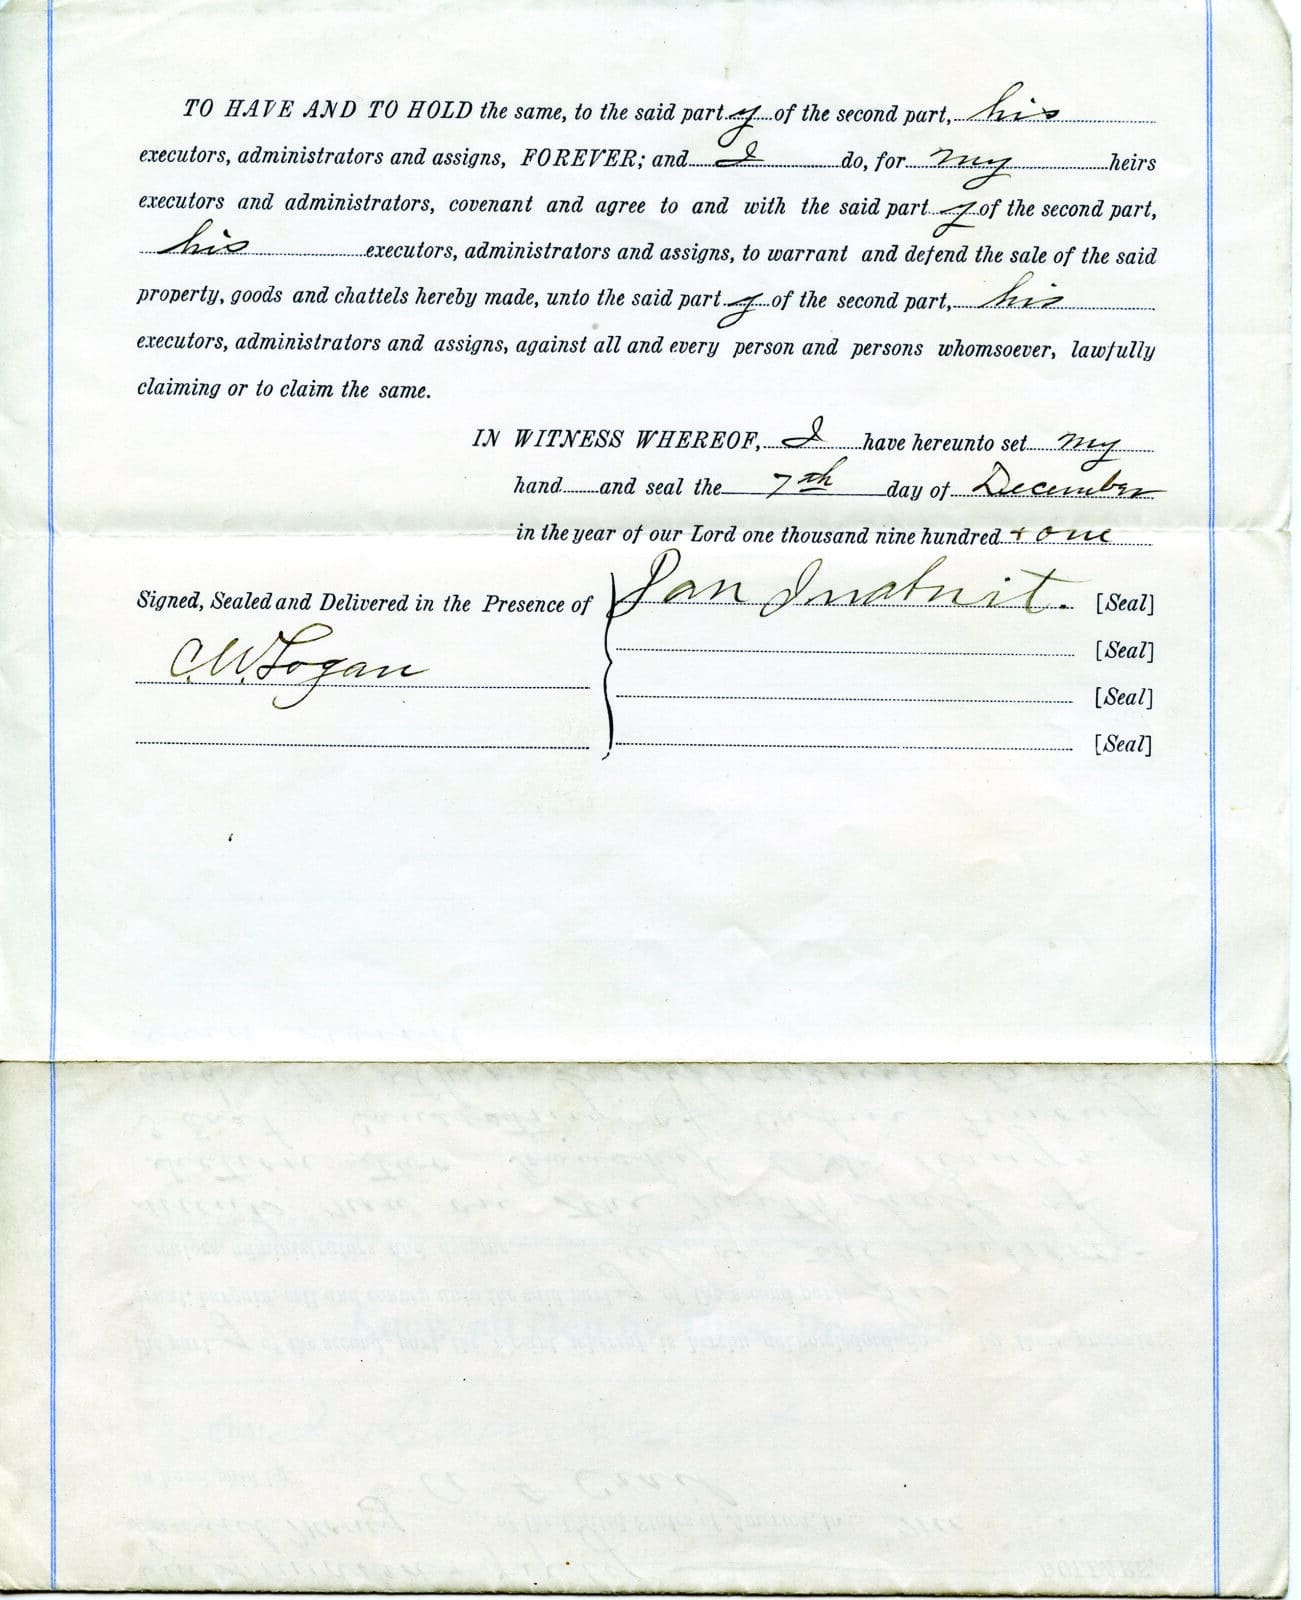 TO HAVE AND TO HOLD the same, to the said party of the second part, his
executors, administrators and assigns, FOREVER; and I do, for my heirs
executors and administrators, covenant and agree to and with the said party of the second part,
his executors, administrators and assigns, to warrant and defend the sale of the said
property, goods and chattels hereby made, unto the said party of the second part, his
executors, administrators and assigns, against all and every person and persons whomsoever, lawfully
claiming or to claim the same.
IN WITNESS WHEREOF, I have hereunto set my
hand and seal the 7th day of December
in the year of our Lord one thousand nine hundred + one
Signed, Sealed and Delivered in the Presence of
[Seal]
C. W. Logan
[Seal]
[Seal]
[Seal]